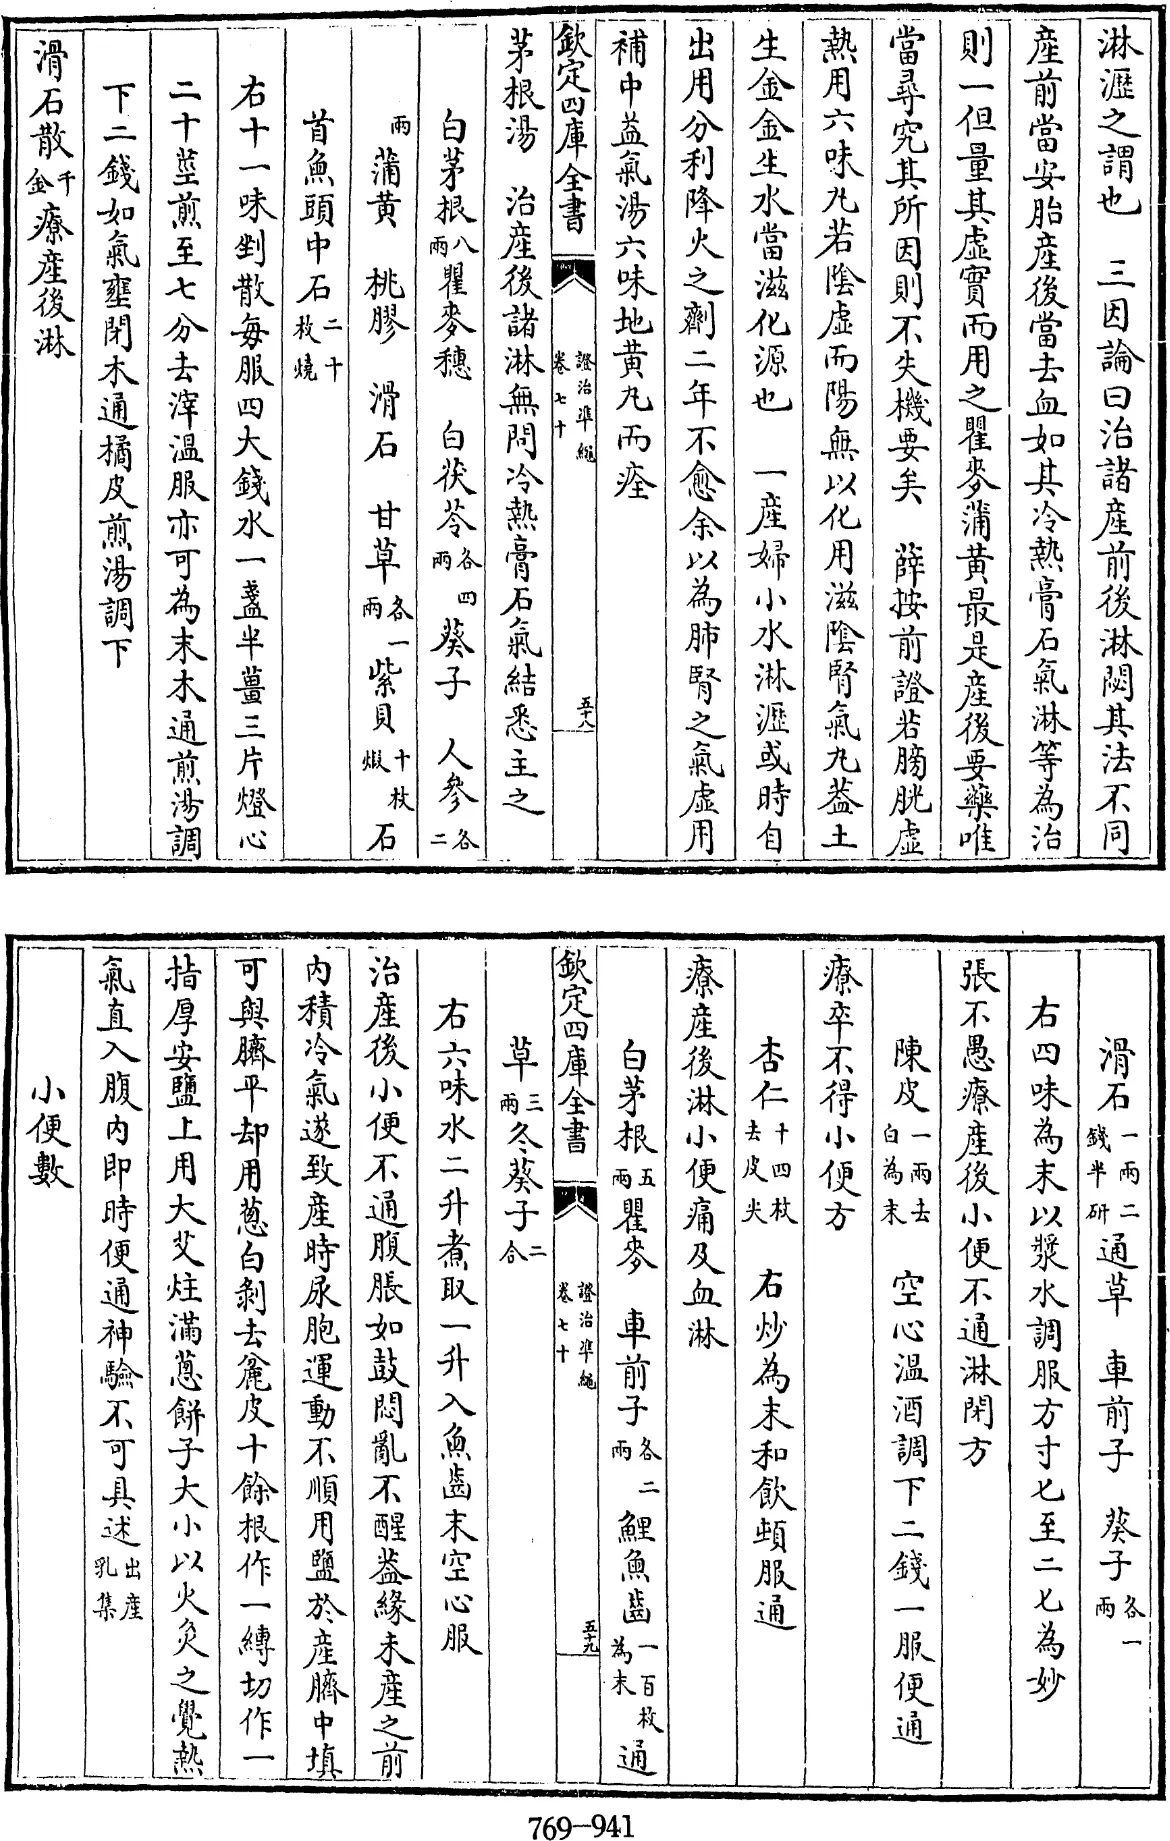 淋瀝之謂也　三因論曰治諸產前後淋閟其法不同
產前當安胎產後當去血如其冷熱膏石氣淋等為治
則一但量其虛實而用之瞿麥蒲黃最是產後要藥唯
當尋究其所因則不失機要矣　薛按前證若膀胱虛
熱用六味丸若陰虛而陽無以化用滋陰腎氣丸蓋土
生金金生水當滋化源也　一產婦小水淋瀝或時自
出用分利降火之劑二年不愈余以為肺腎之氣虛用
補中益氣湯六味地黃丸而痊
欽定四庫全書　證治準繩　卷七十　五十八
茅根湯　治產後諸淋無問冷熱膏石氣結悉主之
白茅根八兩瞿麥穗　白茯苓各四兩葵子　人參各二
兩蒲黃　桃膠　滑石　甘草各一兩紫貝十枚煅石
首魚頭中石二十枚燒
右十一味剉散每服四大錢水一盞半薑三片燈心
二十莖煎至七分去滓溫服亦可為末木通煎湯調
下二錢如氣壅閉木通橘皮煎湯調下
滑石散千金療產後淋
滑石一兩二錢半研通草　車前子　葵子各一兩
右四味為末以漿水調服方寸匕至二匕為妙
張不愚療產後小便不通淋閉方
陳皮一兩去白為末　空心溫酒調下二錢一服便通
療卒不得小便方
杏仁十四枚去皮尖　右炒為末和飲頓服通
療產後淋小便痛及血淋
白茅根五兩瞿麥　車前子各二兩鯉魚齒一百枚為末通
欽定四庫全書　證治準繩　卷七十　五十九
草三兩冬葵子二合
右六味水二升煮取一升入魚齒末空心服
治產後小便不通腹脹如鼓悶亂不醒蓋緣未產之前
內積冷氣遂致產時尿胞運動不順用鹽於產臍中填
可與臍平却用蔥白剝去麄皮十餘根作一縛切作一
指厚安鹽上用大艾炷滿蔥餅子大小以火灸之覺熱
氣直入腹內即時便通神驗不可具述出產乳集
小便數
769-941